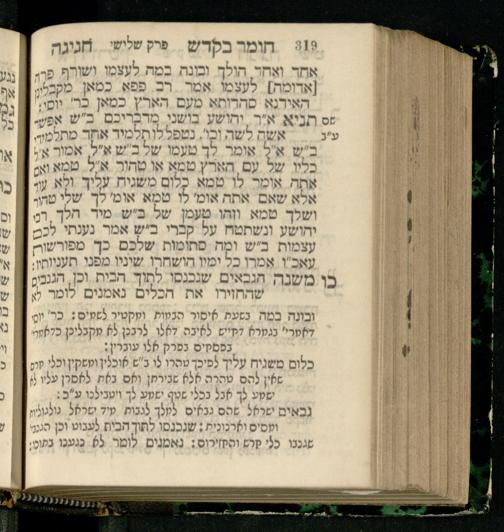 319 חומר בקדש פרק שלישי חגיגה
אחד ואחד הולך ובונה במה לעצמו ושורף פרה
[אדומה] לעצמו אמר רב פפא כמאן מקבלינן
האידנא סהדותא מעם הארץ כמאן כר׳ יוסי:
שם תניא א״ר יהושע בושני מדבריכם ב״ש אפשר
ע״ב אשה לשה וכו׳. נטפל לו תלמיד אחד מתלמידי
ב״ש א״ל אומר לך טעמו של ב״ש א״ל אמור א״ל
כליו של עם הארץ טמא או טהור א״ל טמא ואם
אתה אומר לו טמא כלום משגיח עליך ולא עוד
אלא שאם אתה אומ׳ לו טמא אומ׳ לך שלי טהור
ושלך טמא וזהו טעמן של ב״ש מיד הלך רבי
יהושע ונשתטח על קברי ב״ש אמר נעניתי לכם
עצמות ב״ש ומה סתומות שלכם כך מפורשות
עאכ״ו אמרו כל ימיו הושחרו שיניו מפני תעניותיו:
כו משנה הגבאים שנכנסו לתוך הבית וכן הגנבים
שהחזירו את הכלים נאמנים לומר לא
ובונה במה בשעת איסור הבמות ומקטיר לשמים: כר׳ יוסי
דאמרי׳ בגמרא דחייש לאיבה דאלו לרבנן לא מקבלינן כדאמרי׳
בפסחים בפרק אלו עוברין:
כלום משגיח עליך לפיכך טהרו לו ב״ש אוכלין ומשקין וכלי חרס
שאין להם טהרה אלא שבירתן ואם באת לאסרן עליו לא
ישמע לך אבל בכלי שטף ישמע לך ויטבילנו ע״כ:
גבאים ישראל שהם גבאים למלך לגבות מיד ישראל גולגוליות
ומסים וארנוניות: שנכנסו לתוך הבית לעבוט וכן הגנבי׳
שגנבו כלי חרש והחזירום: נאמנים לומר לא נגענו בתוכו: